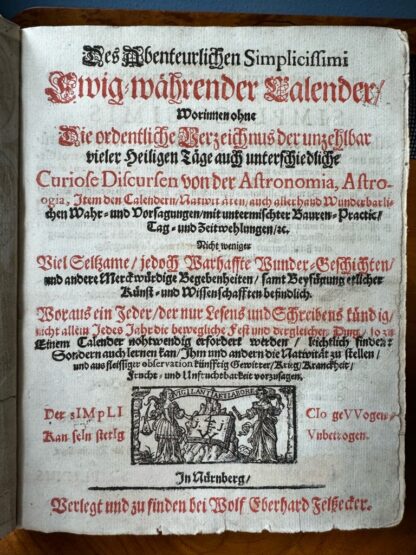 Des Abenteurlichen Simplicissimi
Ewig-währender Calender/
Worinnen ohne
Die ordentliche Verzeichnus der unzehlbar
vieler Heiligen Täge auch unterschiedliche
Curiose Discursen von der Astronomia, Astro-
ogia, Item den Calendern/Nativitäten, auch allerhand Wunderbarli-
chen Wahr- und Vorsagungen/mit untermischter Bauren-Practic/
Tag- und Zeitwehlungen/ꝛc.
Nicht weniger
Viel Seltzame/ jedoch Warhaffte Wunder-Geschichten/
und andere Merckwürdige Begebenheiten/ samt Beyfügung etlicher
Künst- und Wissenschafften befindlich.
Woraus ein Jeder/ der nur Lesens und Schreibens kündig/
nicht allein Jedes Jahr die bewegliche Fest und dergleichen Ding/ so zu
Einem Calender nohtwendig erfordert werden/ leichtlich finden:
Sondern auch lernen kan/ Ihm und andern die Nativität zu stellen/
und aus fleissiger observation künfftig Gewitter/Krieg/Kranckheit/
Frucht- und Unfruchtbarkeit vorzusagen.
VIGILANTIA ET LABORE
Der sIMpLI CIo geVVogen/
Kan seIn stetIg Vnbetrogen.
In Nürnberg/
Verlegt und zu finden bei Wolf Eberhard Felßecker.